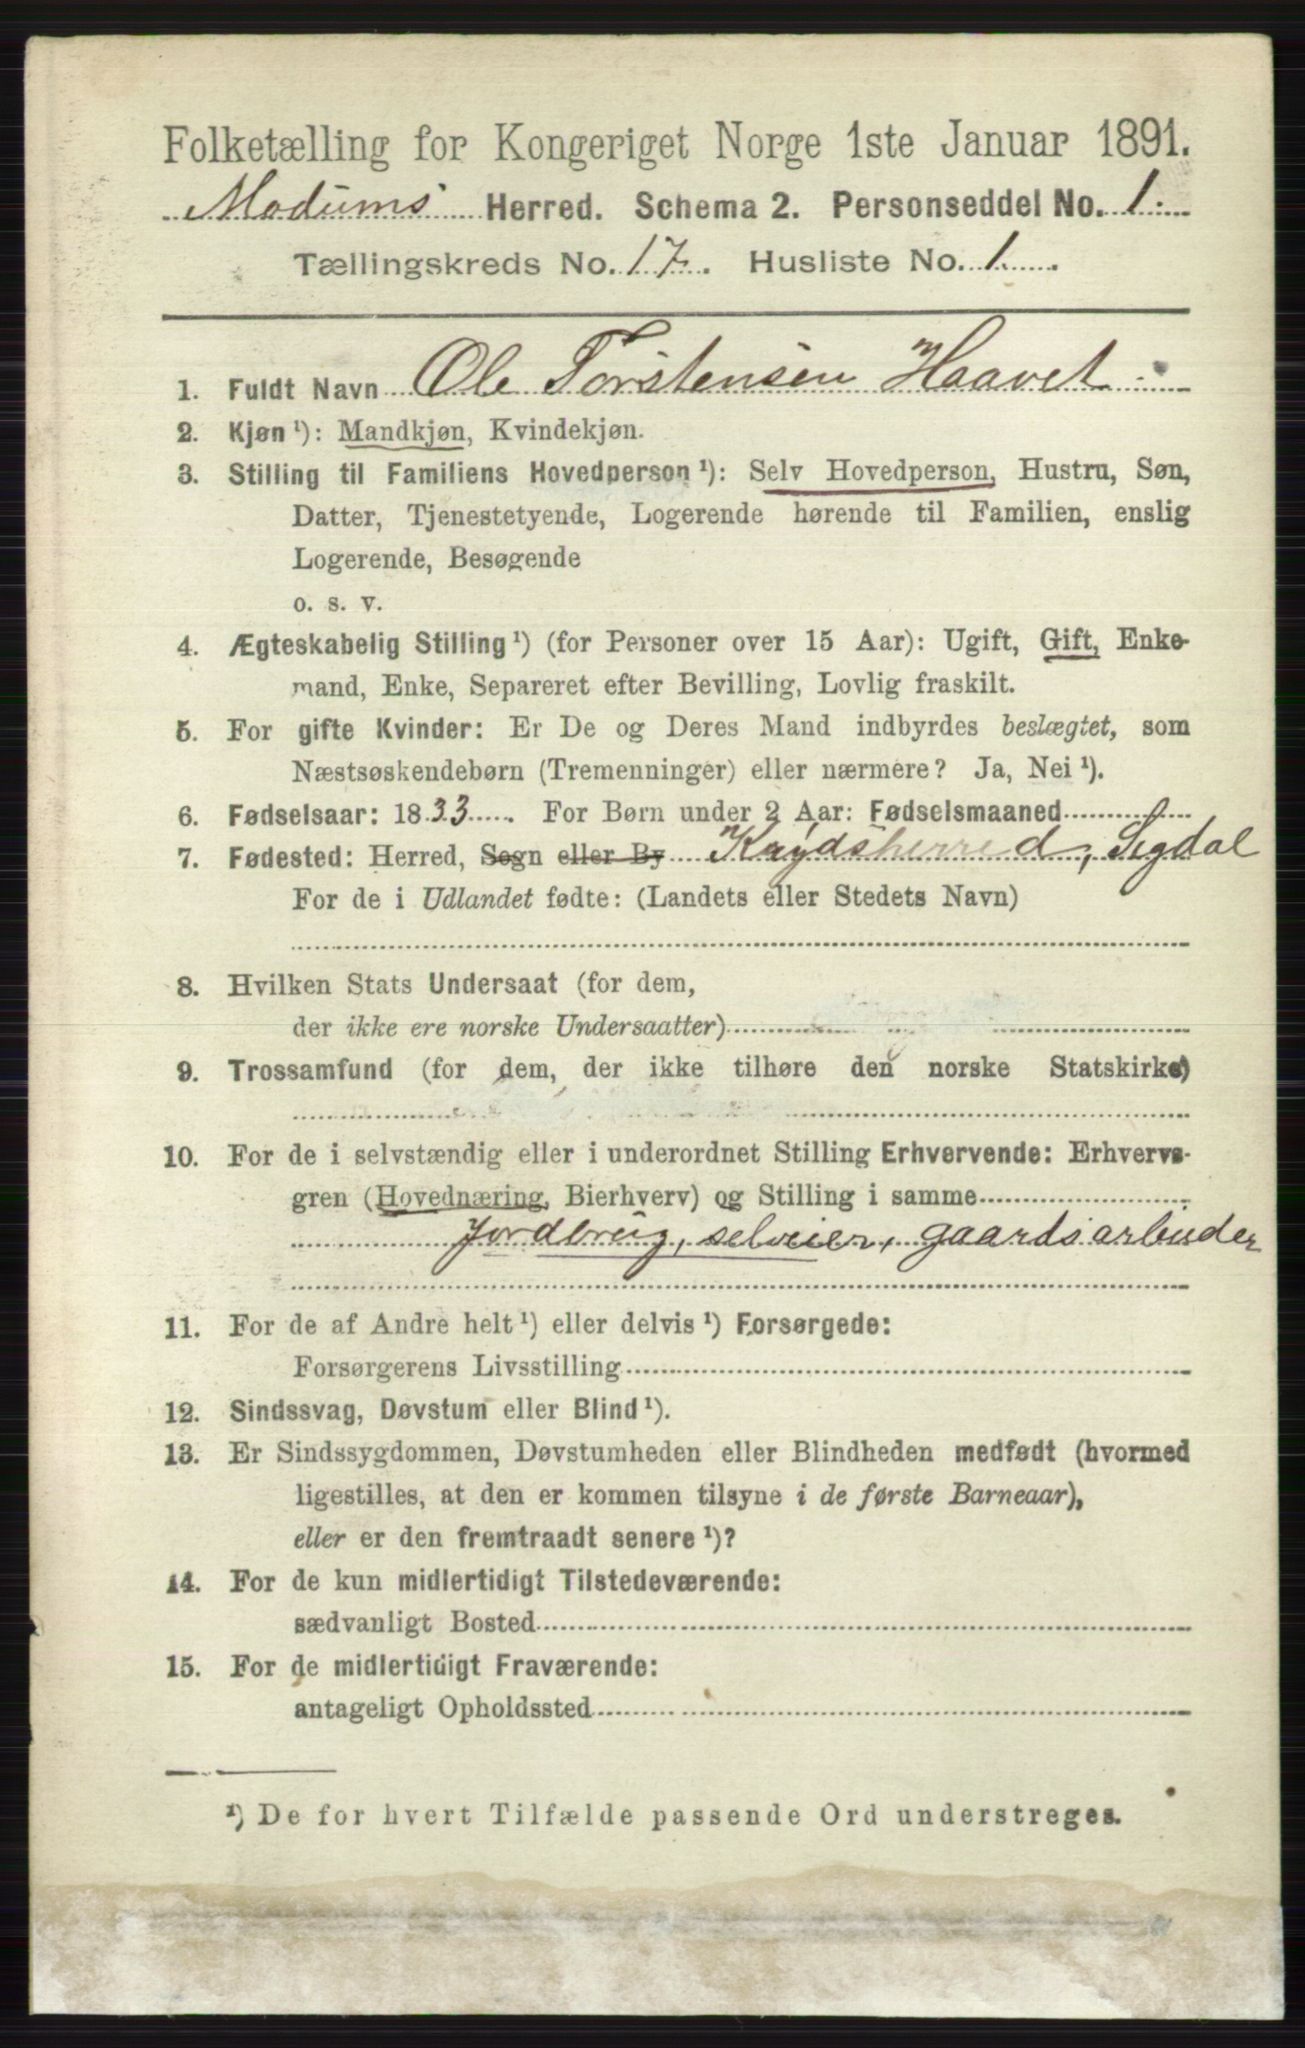 Folketælling for Kongeriget Norge 1ste Januar 1891.
Modums Herred. Schema 2. Personseddel No. 1.
Tællingskreds No. 17. Husliste No. 1.
1. Fuldt Navn Ole Torstensen Haavet
2. Kjøn ¹): Mandkjøn, Kvindekjøn.
3. Stilling til Familiens Hovedperson ¹): Selv Hovedperson, Hustru, Søn,
Datter, Tjenestetyende, Logerende hørende til Familien, enslig
Logerende, Besøgende
o. s. v.
4. Ægteskabelig Stilling ¹) (for Personer over 15 Aar): Ugift, Gift, Enke-
mand, Enke, Separeret efter Bevilling, Lovlig fraskilt.
5. For gifte Kvinder: Er De og Deres Mand indbyrdes beslægtet, som
Næstsøskendebørn (Tremenninger) eller nærmere? Ja, Nei ¹).
6. Fødselsaar: 1833. For Børn under 2 Aar: Fødselsmaaned
7. Fødested: Herred, Sogn eller By Krydsherred, Sigdal
For de i Udlandet fødte: (Landets eller Stedets Navn)
8. Hvilken Stats Undersaat (for dem,
der ikke ere norske Undersaatter)
9. Trossamfund (for dem, der ikke tilhøre den norske Statskirke)
10. For de i selvstændig eller i underordnet Stilling Erhvervende: Erhvervs-
gren (Hovednæring, Bierhverv) og Stilling i samme
Jordbrug, selveier, gaardsarbeider
11. For de af Andre helt ¹) eller delvis ¹) Forsørgede:
Forsørgerens Livsstilling
12. Sindssvag, Døvstum eller Blind ¹).
13. Er Sindssygdommen, Døvstumheden eller Blindheden medfødt (hvormed
ligestilles, at den er kommen tilsyne i de første Barneaar),
eller er den fremtraadt senere ¹)?
14. For de kun midlertidigt Tilstedeværende:
sædvanligt Bosted
15. For de midlertidigt Fraværende:
antageligt Opholdssted
¹) De for hvert Tilfælde passende Ord understreges.